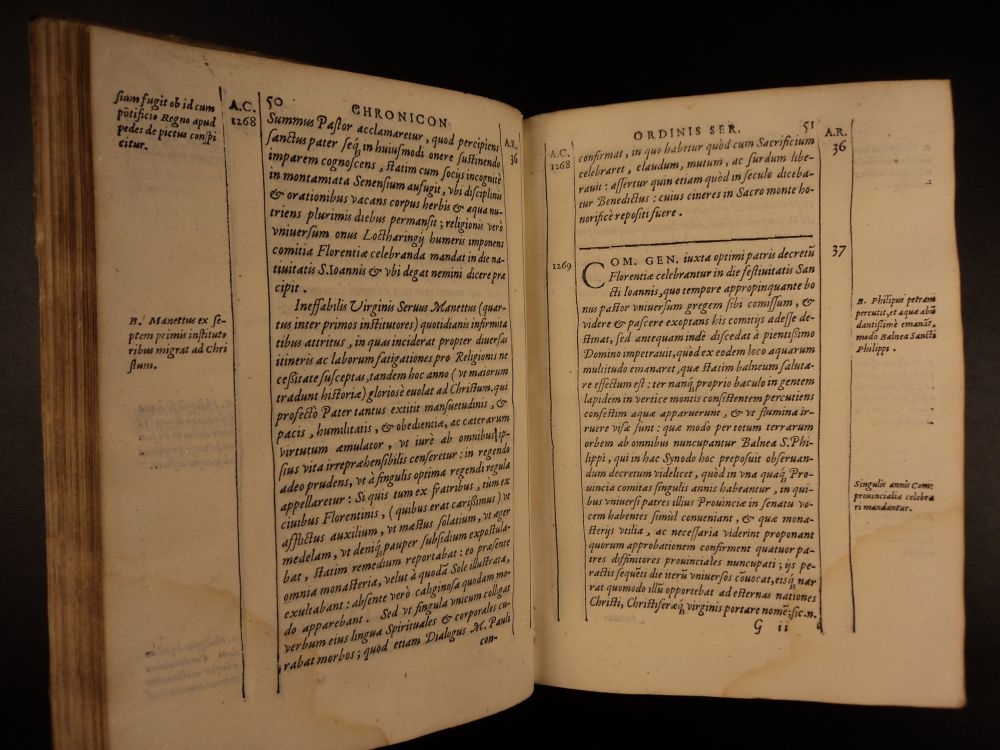 50
CHRONICON
A.C.
1268
A.R.
36
sium fugit ob id cum
põtificio Regno apud
pedes de pictus conspi
citur.
Summus Pastor acclamaretur, quod percipiens
sanctus pater seq́; in huiusmodi onere sustinendo
imparem cognoscens, statim cum socijs incognitè
in montamiata Senensium aufugit, vbi disciplinis
& orationibus vacans corpus herbis & aqua nu-
triens plurimis diebus permansit; religionis verò
vniuersum onus Loctharingij humeris imponens
comitia Florentiæ celebranda mandat in die na-
tiuitatis S. Ioannis & vbi degat nemini dicere præ
cipit.
Ineffabilis Virginis Seruus Manettus (quar-
tus inter primos institutores) quotidianis infirmita
tibus attritus, in quas inciderat propter diuersas
itineris ac laborum fatigationes pro Religionis ne
cessitate susceptas, tandem hoc anno (vt maiorum
tradunt historiæ) gloriosè euolat ad Christum. qui
profectò Pater tantus extitit mansuetudinis, &
pacis, humilitatis, & obedientiæ, ac cæterarum
virtutum æmulator, vt iurè ab omnibus ip-
sius vita irrepræhensibilis censeretur: in regendo
adeo prudens, vt à singulis optima regendi regula
appellaretur: Si quis tum ex fratribus, tum ex
ciuibus Florentinis, (quibus erat carissimus) vt
afflictus auxilium, vt mæstus solatium, vt æger
medelam, vt deniq́; pauper subsidium expostula-
bat, statim remedium reportabat: eo præsente
omnia monasteria, velut à quodã Sole illustrata,
exultabant: absente verò caliginosa quodam mo-
do apparebant. Sed vt singula vnicum colligat
verbum eius lingua Spirituales & corporales cu-
rabat morbos; quod etiam Dialogus M. Pauli
con-
B. Manettus ex se-
ptem primis instituto
ribus migrat ad Chri
stum.
ORDINIS SER.
51
A.C.
1268
A.R.
36
confirmat, in quo habetur quòd cum Sacrificium
celebraret, claudum, mutum, ac surdum libe-
rauit: assertur quin etiam quòd in seculo diceba-
tur Benedictus: cuius cineres in Sacro monte ho-
norificè repositi fuere.
1269
37
COM. GEN. iuxta optimi patris decretũ
Florentiæ celebrantur in die festiuitatis San
cti Ioannis, quo tempore appropinquante bo
nus pastor vniuersum gregem sibi comissum, &
videre & pascere exoptans his comitijs adesse de-
stinat, sed antequam indè discedat à pientissimo
Domino impetrauit, quod ex eodem loco aquarum
multitudo emanaret, quæ statim balneum saluta-
re effectum est: ter nanq́; proprio baculo ingentem
lapidem in vertice montis consistentem percutiens
confestim aquæ apparuerunt, & vt flumina ir-
ruere visæ sunt: quæ modò per totum terrarum
orbem ab omnibus nuncupantur Balnea S. Phi-
lippi, qui in hac Synodo hoc preposuit obseruan-
dum decretum videlicet, quòd in vna quaq́; Pro-
uincia comitia singulis annis habeantur, in qui-
bus vniuersi patres illius Prouinciæ in senatu vo-
cem habentes simùl conueniant, & quæ mona-
sterijs vtilia, ac necessaria viderint proponant
quorum approbationem confirment quatuor pa-
tres diffinitores prouinciales nuncupati; ijs pe-
ractis sequẽti die iterũ vniuersos cõuocat, eisq́; nar
rat quomodo illũ opportebat ad esternas nationes
Christi, Christiferæq́; virginis portare nomẽ; sic.n.
G ii
B. Philipus petram
percutit, et aquæ abũ
dantissimè emanãt,
modo Balnea Sancti
Philippi.
Singulis annis Com:
prouincialia celebra
ri mandantur.